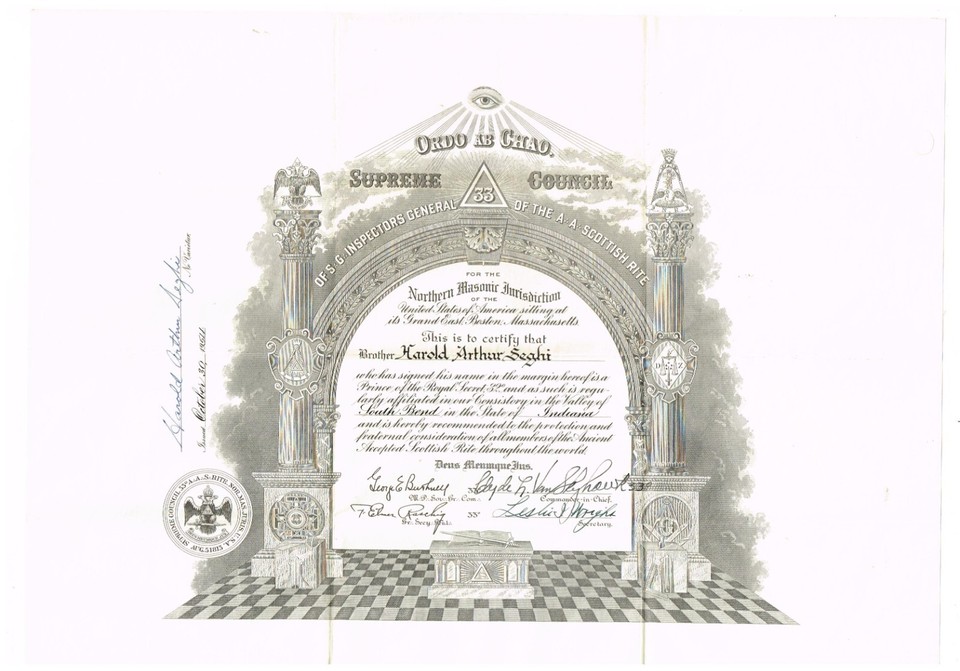 ORDO AB CHAO.
SUPREME 33 COUNCIL
OF S. G. INSPECTORS GENERAL OF THE A. A. SCOTTISH RITE
FOR THE
Northern Masonic Jurisdiction
OF THE
United States of America sitting at
its Grand East, Boston, Massachusetts.
This is to certify that
Brother Harold Arthur Seghi
who has signed his name in the margin hereof is a
Prince of the Royal Secret 32° and as such is regu-
larly affiliated in our Consistory in the Valley of
South Bend in the State of Indiana
and is hereby recommended to the protection and
fraternal consideration of all members of the Ancient
Accepted Scottish Rite throughout the world.
Deus Meumque Jus.
George E. Bushnell 33°
M.P. Sov. Gr. Com.
Commander-in-Chief.
33°
Gr. Secy. Gen.
Secretary.
Harold Arthur Seghi
Ne Varietur
Issued October 30, 1951
SUPREME COUNCIL 33° A.A.S. RITE NOR. MAS. JURIS. U.S.A.